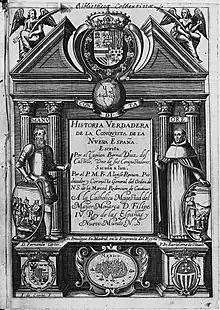 Bibliotheca Colbertina
MANV
ORE
HISTORIA VERDADERA
DE LA CONQVISTA DE LA
NVEVA ESPAÑA.
Escrita
Por el Capitan Bernal Diaz, del
Castillo, Vno de sus Conquistadores.
Sacada a luz,
Por el P. M. Fr. Alonso Remon, Pre-
dicador y Coronista General del Orden de
N. S. de la Merced, Redencion de Cautiuos.
A la Catholica Magestad del
Mayor Monarca D. Filipe
IV. Rey de las Españas y
Nuevo Mundo. N. S.
en Madrid en la Emprenta del Reyno